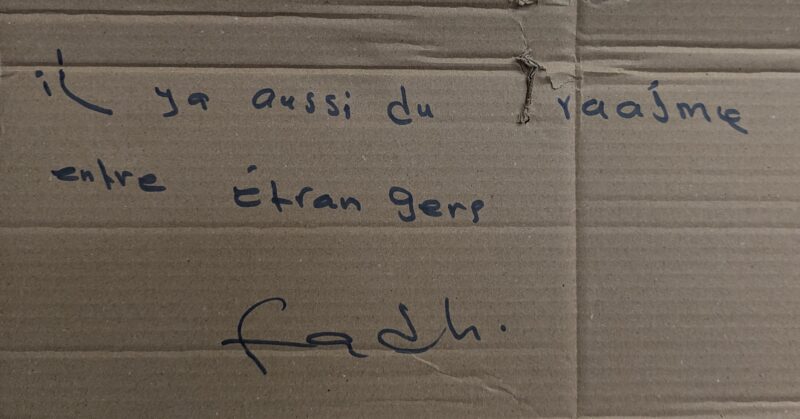 il ya aussi du raasme
entre étrangers
fadh.